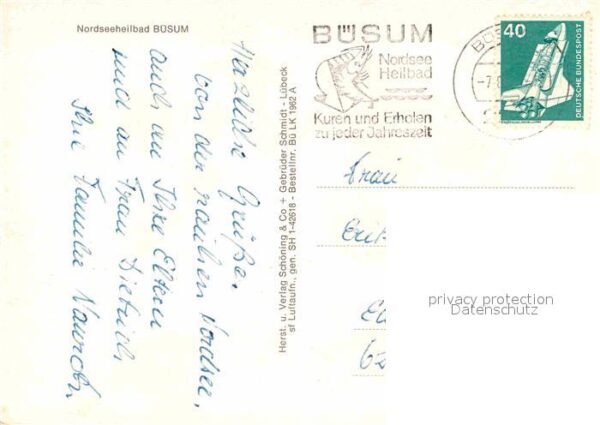 Nordseeheilbad BÜSUM
Herzliche Grüße,
von der rauhen Nordsee,
auch an Ihre Eltern
und an Frau Dietrich,
Ihre Familie
Herst. u. Verlag Schöning & Co + Gebrüder Schmidt - Lübeck
sf Luftaufn., gen. SH 1-42618 - Bestellnr. Bü LK 1962 A
BÜSUM
Nordsee
Heilbad
Kuren und Erholen
zu jeder Jahreszeit
40
DEUTSCHE BUNDESPOST
Frau
privacy protection
Datenschutz